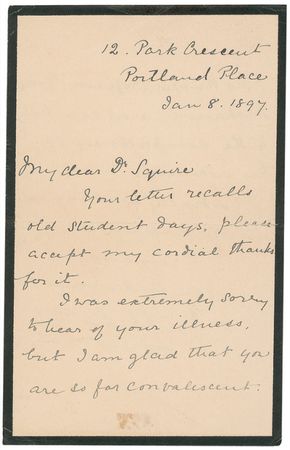 12. Park Crescent
Portland Place
Jan 8. 1897.
My dear Dr Squire
Your letter recalls
old student days, please
accept my cordial thanks
for it.
I was extremely sorry
to hear of your illness,
but I am glad that you
are so far convalescent.